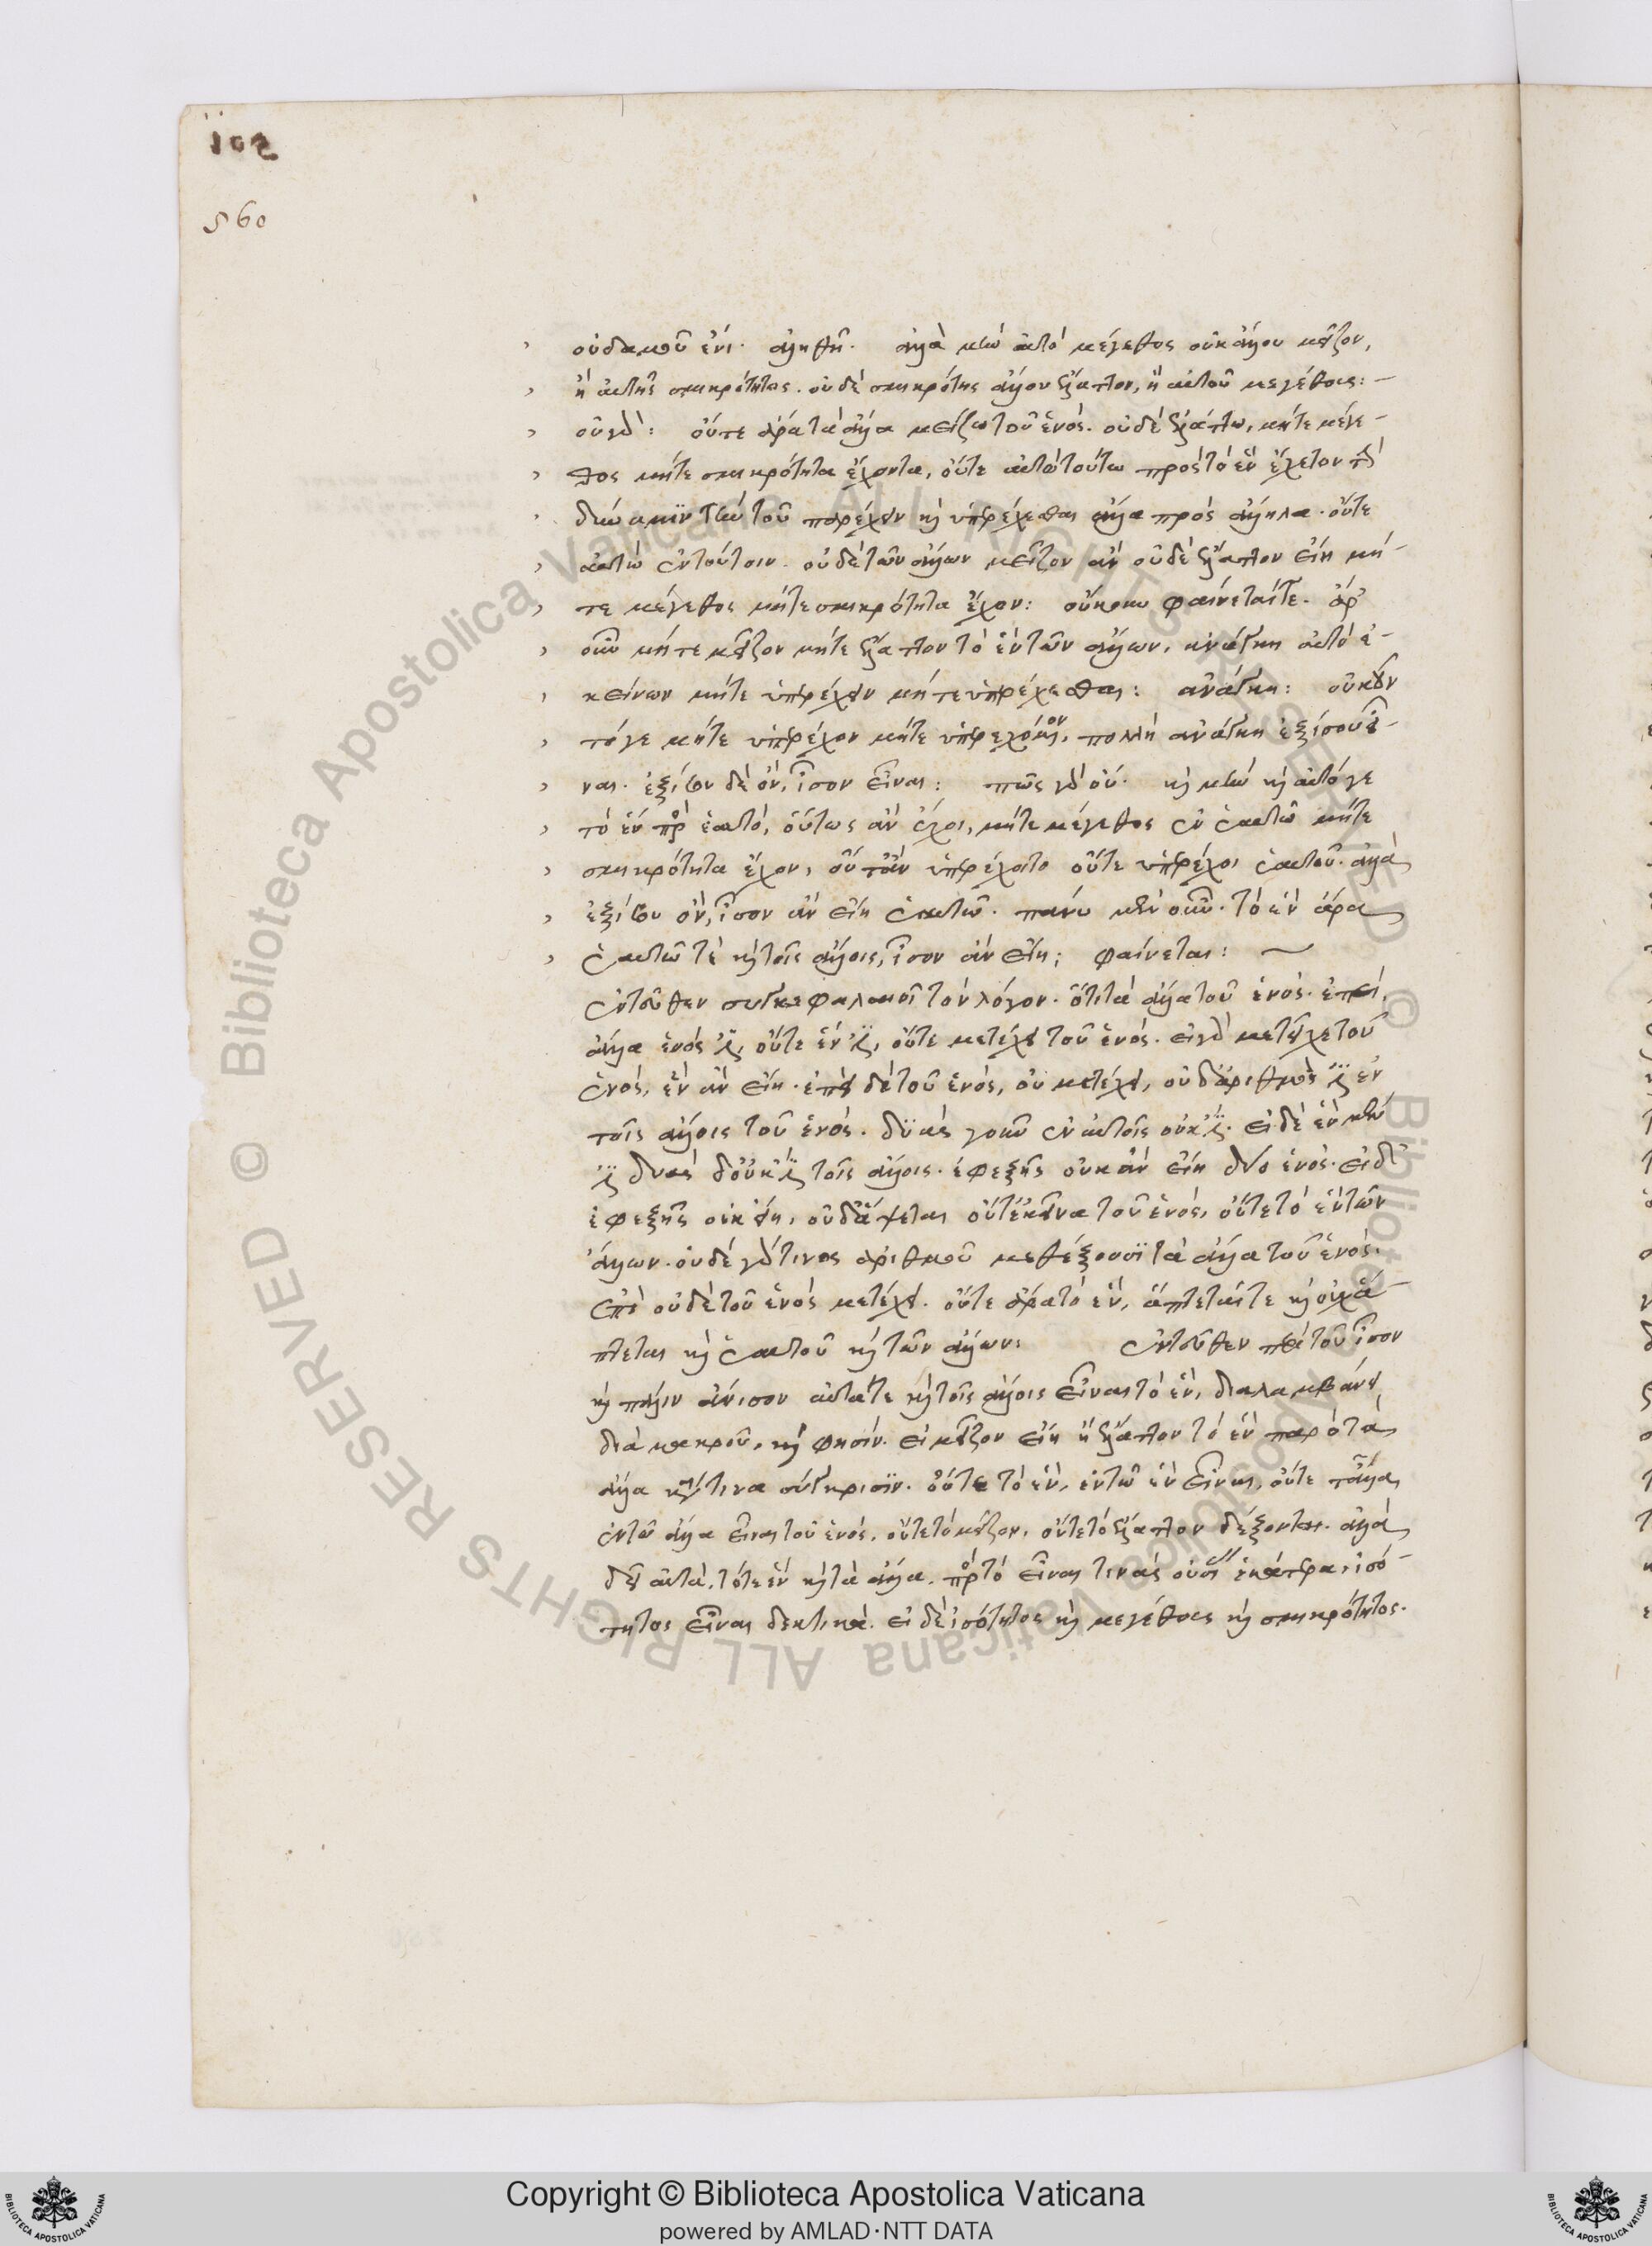 102
560
οὐδαμοῦ ἐνί. ἀληθῆ. ἀλλὰ μὴν αὐτὸ μέγεθος οὐκ ἄλλου μεῖζον,
ἢ αὐτῆς σμικρότητος. οὐδὲ σμικρότης ἄλλου ἔλαττον, ἢ αὐτοῦ μεγέθους:
οὐ γάρ: οὔτε ἄρα τὰ ἄλλα μείζω τοῦ ἑνός. οὐδὲ ἐλάττω, μήτε μέγε-
θος μήτε σμικρότητα ἔχοντα, οὔτε αὐτὼ τούτω πρὸς τὸ ἓν ἔχετον τὴν
δύναμιν τὴν τοῦ παρέχειν καὶ ὑπερέχεσθαι ἀλλὰ πρὸς ἄλληλα. οὔτε
αὐτὼ ἐν τούτοιν. οὐδὲ τῶν ἄλλων μεῖζον ἂν οὐδὲ ἔλαττον εἴη μή-
τε μέγεθος μήτε σμικρότητα ἔχον: οὔκουν φαίνεταίτε. ἆρ'
οὖν μήτε μεῖζον μήτε ἔλαττον τὸ ἓν τῶν ἄλλων, ἀνάγκη αὐτὸ ἐ-
κείνων μήτε ὑπερέχειν μήτε ὑπερέχεσθαι: ἀνάγκη: οὐκοῦν
τόγε μήτε ὑπερέχον μήτε ὑπερεχόμενον, πολλὴ ἀνάγκη ἐξίσου εἶ-
ναι. ἐξίσου δὲ ὄν, ἴσον εἶναι: πῶς γὰρ οὔ. καὶ μὴν καὶ αὐτόγε
τὸ ἓν πρὸς ἑαυτό, οὕτως ἂν ἔχοι, μήτε μέγεθος ἐν ἑαυτῶ μήτε
σμικρότητα ἔχον, οὔτ' ἂν ὑπερέχοιτο οὔτε ὑπερέχοι ἑαυτοῦ. ἀλλὰ
ἐξίσου ὄν, ἴσον ἂν εἴη ἑαυτῶ. πάνυ μὲν οὖν. τὸ ἓν ἄρα
ἑαυτῶ τὲ καὶ τοῖς ἄλλοις, ἴσον ἂν εἴη; φαίνεται:
ἐντεῦθεν συγκεφαλαιοῖ τὸν λόγον. ὅτι τὰ ἄλλα τοῦ ἑνός. ἐπεὶ,
ἄλλα ἑνός ἐστιν, οὔτε ἕν ἐστιν, οὔτε μετέχει τοῦ ἑνός. εἰ γὰρ μετεῖχε τοῦ
ἑνός, ἓν ἂν εἴη. ἐπεὶ δὲ τοῦ ἑνός, οὐ μετέχει, οὐδ' ἀριθμός ἐστιν ἐν
τοῖς ἄλλοις τοῦ ἑνός. δυὰς γοῦν ἐν αὐτοῖς οὐκ ἔστιν. εἰ δὲ ἓν μὲν
ἐστι δυὰς δ' οὐκ ἔστι τοῖς ἄλλοις. ἐφεξῆς οὐκ ἂν εἴη δύο ἑνός. εἰ δ'
ἐφεξῆς οὐκ εἴη, οὐδ' ἅψεται οὔτ' ἐκεῖνα τοῦ ἑνός, οὔτε τὸ ἓν τῶν
ἄλλων. οὐδέ γάρ τινος ἀριθμοῦ μεθέξουσι τὰ ἄλλα τοῦ ἑνός.
ἐπεὶ οὐδὲ τοῦ ἑνός μετέχει. οὔτε ἄρα τὸ ἓν, ἅπτεταίτε καὶ οὐχ ἅ-
πτεται καὶ ἑαυτοῦ καὶ τῶν ἄλλων: ἐντεῦθεν περὶ τοῦ ἴσον
καὶ πάλιν ἄνισον αὐτῶτε καὶ τοῖς ἄλλοις εἶναι τὸ ἓν, διαλαμβάνει
διὰ μακροῦ, καὶ φησίν. εἰ μεῖζον εἴη ἢ ἔλαττον τὸ ἓν παρὸ τὰ
ἄλλα κατά τινα σύγκρισιν. οὔτε τὸ ἓν, ἐν τῶ ἓν εἶναι, οὔτε τἆλλα
ἐν τῶ ἄλλα εἶναι τοῦ ἑνός. οὔτε τὸ μεῖζον, οὔτε τὸ ἔλαττον δέξονται. ἀλλὰ
δεῖ αὐτὰ, τότε ἓν καὶ τὰ ἄλλα, πρὸς τὸ εἶναι τινὰς οὐσίας ἑκάτερα, ἰσό-
τητος εἶναι δεκτικά. εἰ δὲ ἰσότητος καὶ μεγέθους καὶ σμικρότητος.
Copyright © Biblioteca Apostolica Vaticana
powered by AMLAD·NTT DATA
© Biblioteca Apostolica Vaticana ALL RIGHTS RESERVED © Biblioteca Apostolica Vaticana ALL RIGHTS RESERVED